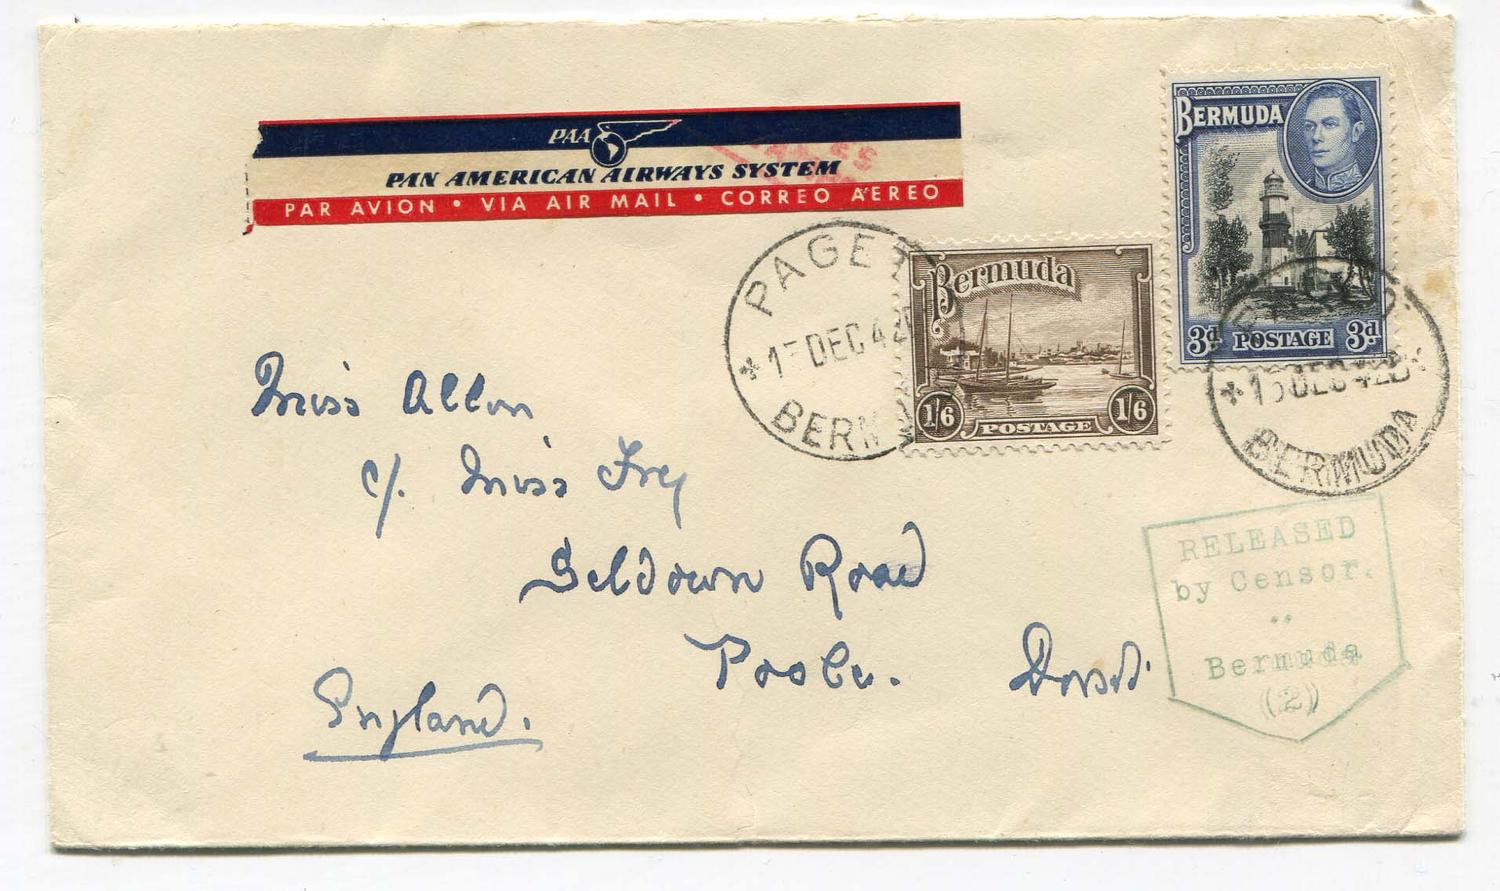 PAA
PAN AMERICAN AIRWAYS SYSTEM
PAR AVION • VIA AIR MAIL • CORREO AÉREO
BERMUDA
3d POSTAGE 3d
Bermuda
1/6 POSTAGE 1/6
PAGET
DEC 42
BERM
DEC 42
BERMUDA
Miss Allen
c/. Miss Frey
Seldown Road
Poole. Dorset.
England.
RELEASED
by Censor.
Bermuda
(2)